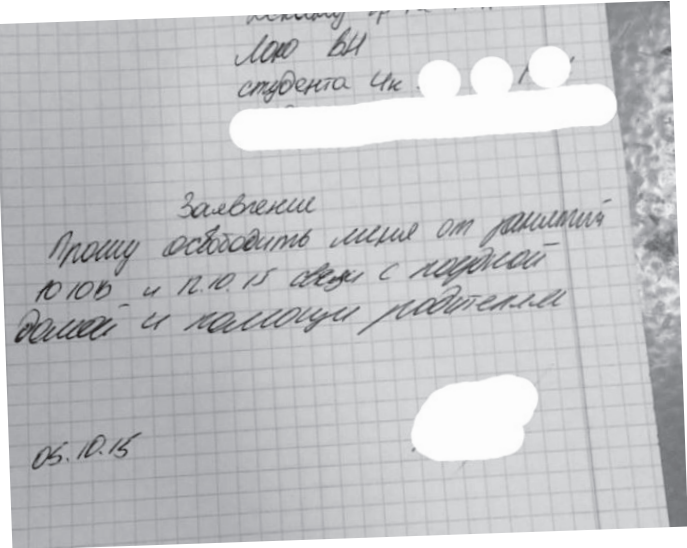 Лою ВН
студента 4к
Заявление
Прошу освободить меня от занятий
10 10 15 и 12.10.15 связи с поездкой
домой и помощи родителям
05.10.15